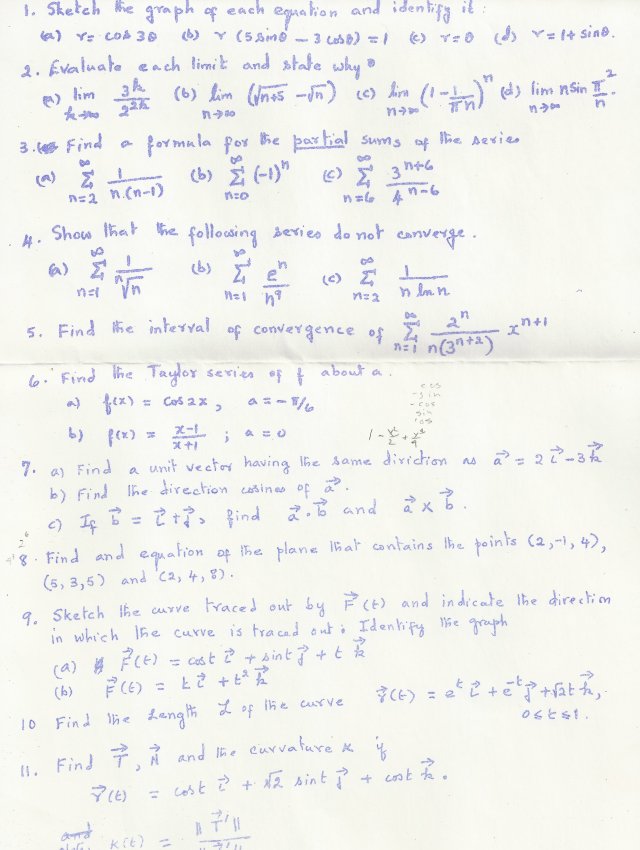 1. Sketch the graph of each equation and identify it :
(a) r = cos 3θ (b) r (5 sinθ - 3 cosθ) = 1 (c) r = θ (d) r = 1 + sinθ.
2. Evaluate each limit and state why
(a) lim k→∞ 3^k / 2^2k (b) lim n→∞ (√n+5 - √n) (c) lim n→∞ (1 - 1/πn)^n (d) lim n→∞ n sin π²/n.
3. Find a formula for the partial sums of the series
(a) ∞ Σ n=2 1/n.(n-1) (b) ∞ Σ n=0 (-1)^n (c) ∞ Σ n=6 3^n+6 / 4^n-6
4. Show that the following series do not converge.
(a) ∞ Σ n=1 1/ⁿ√n (b) ∞ Σ n=1 e^n / n^9 (c) ∞ Σ n=2 1 / n ln n
5. Find the interval of convergence of ∞ Σ n=1 2^n / n(3^n+2) x^n+1
6. Find the Taylor series of f about a.
a) f(x) = cos 2x , a = - π/6
cos
-sin
-cos
sin
cos
b) f(x) = x-1 / x+1 ; a = 0
1 - x²/2 + x⁴/4
7. a) Find a unit vector having the same diriction as a⃗ = 2 i⃗ - 3 k⃗
b) Find the direction cosines of a⃗.
c) If b⃗ = i⃗ + j⃗, find a⃗ . b⃗ and a⃗ x b⃗ .
8. Find and equation of the plane that contains the points (2,-1, 4),
(5, 3, 5) and (2, 4, 8).
9. Sketch the curve traced out by F⃗ (t) and indicate the direction
in which the curve is traced out. Identify the graph
(a) F⃗(t) = cost i⃗ + sint j⃗ + t k⃗
(b) F⃗(t) = t i⃗ + t² k⃗
10 Find the Length L of the curve r⃗(t) = e^t i⃗ + e^-t j⃗ + √2t k⃗,
0 ≤ t ≤ 1.
11. Find T⃗, N⃗ and the curvature κ if
r⃗(t) = cost i⃗ + √2 sint j⃗ + cost k⃗ .
and
K(t) = || T⃗' || / || r⃗' ||